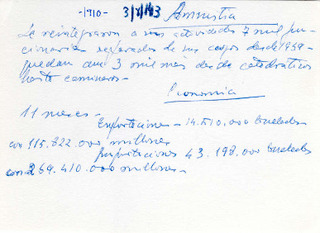 -1910- 3/2/83
Amnistia
Se reintegraron a sus actividades 7 mil fun-
cionarios separados de sus cargos desde 1959-
quedan aun 3 mil mas desde catedraticos
hasta camineros-
Economia
11 meses-
Exportaciones - 14.510.000 toneladas
con 115.822.000 millones
Importaciones 43.198.000 toneladas
con 269.410.000 millones-